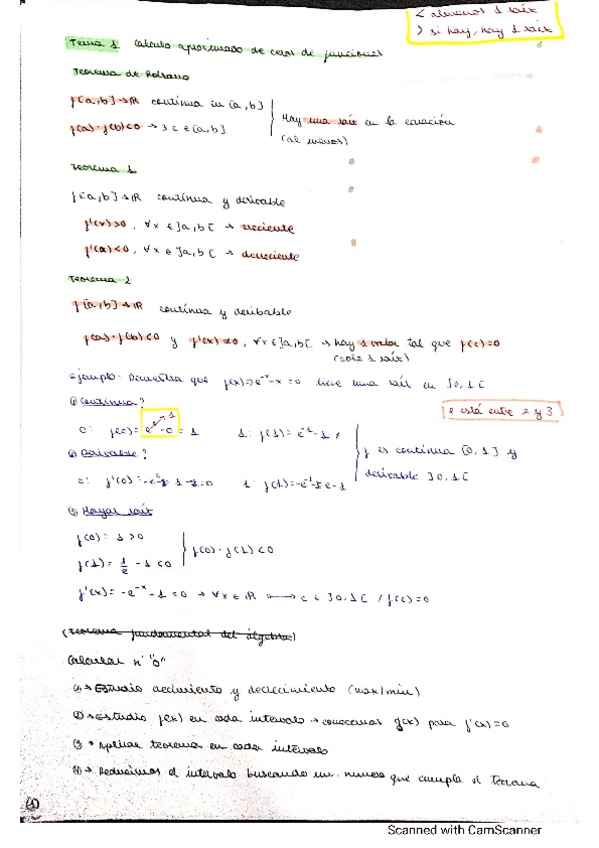 < al menos 1 raíz
> si hay, hay 1 raíz
Tema 1. Calculo aproximado de ceros de funciones
Teorema de Bolzano
f[a,b]→ℝ continua en [a,b]
f(a)·f(b)<0 → ∃ c ∈[a,b]
Hay una raíz en la ecuación
(al menos)
Teorema 1
f[a,b]→ℝ continua y derivable
f'(x)>0, ∀x ∈]a,b[ → creciente
f'(x)<0, ∀x ∈]a,b[ → decreciente
Teorema 2
f[a,b]→ℝ continua y derivable
f(a)·f(b)<0 y f'(x)≠0, ∀x∈]a,b[ → hay 1 valor tal que f(c)=0
(solo 1 raíz)
Ejemplo: Demuestra que f(x)=e⁻ˣ-x=0 tiene una raíz en ]0,1[
① Continua?
e está entre 2 y 3
0: f(0)= e⁰-0 = 1 1: f(1)= e⁻¹-1
f es continua [0,1] y
② Derivable?
derivable ]0,1[
③ Hayar raíz
f(0)= 1 >0
f(1)= 1/e - 1 <0
f(0)·f(1)<0
f'(x)= -e⁻ˣ-1 <0 → ∀x∈ℝ ⟼ c ∈ ]0,1[ / f(c)=0
(Teorema fundamental del álgebra)
Calcular nº "0"
① → Estudio crecimiento y decrecimiento (max/min)
② → Estudio f(x) en cada intervalo → conocemos f(x) para f'(x)=0
③ • Aplicar teorema en cada intervalo
④ → Reducimos el intervalo buscando un numero que cumpla el teorema
(1)
Scanned with CamScanner